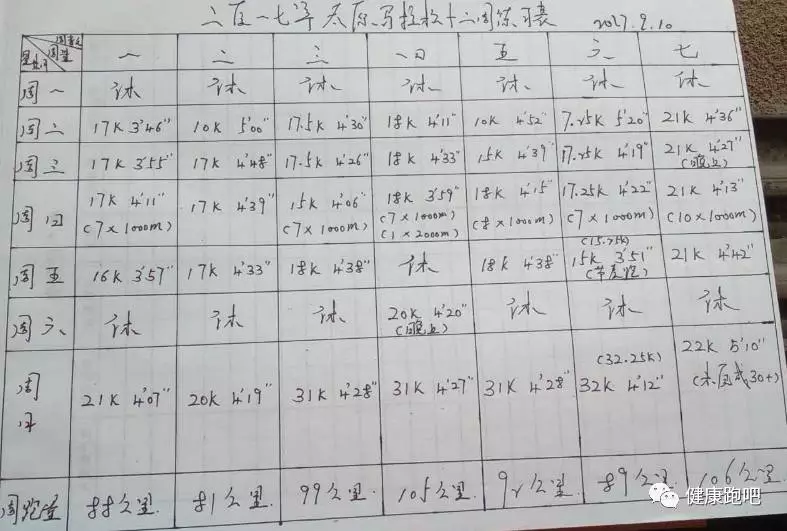 太原马拉松十二周练习表 2017.9.10
一 二 三 四 五 六 七
周一 休 休 休 休 休 休 休
周二 17K 3'46" 10K 5'00" 17.5K 4'30" 18K 4'11" 10K 4'52" 7.25K 5'20" 21K 4'36"
周三 17K 3'55" 17K 4'48" 17.5K 4'26" 18K 4'33" 15K 4'39" 17.25K 4'19" 21K 4'27"
周四 17K 4'11" 17K 4'39" 15K 4'06" 18K 3'59" 18K 4'15" 17.25K 4'22" 21K 4'13"
(7×1000m) (7×1000m) (7×1000m) (8×1000m) (7×1000m) (10×1000m)
(1×2000m)
(15.75K)
周五 16K 3'57" 17K 4'33" 18K 4'38" 休 18K 4'38 15K 3'51" 21K 4'42"
(节奏跑)
周六 休 休 休 20K 4'20" 休 休 休
(32.25K) 22K 5'10"
周日 21K 4'07" 20K 4'19" 31K 4'28" 31K 4'27" 31K 4'28" 32K 4'12"
周跑量 88公里. 81公里. 99公里. 105公里. 92公里. 89公里. 106公里.
健康跑吧